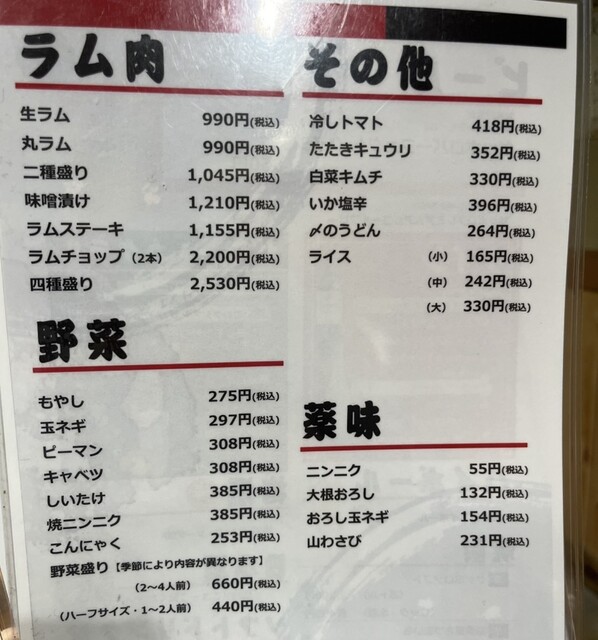 ラム肉
生ラム 990円(税込)
丸ラム 990円(税込)
二種盛り 1,045円(税込)
味噌漬け 1,210円(税込)
ラムステーキ 1,155円(税込)
ラムチョップ（2本） 2,200円(税込)
四種盛り 2,530円(税込)
野菜
もやし 275円(税込)
玉ネギ 297円(税込)
ピーマン 308円(税込)
キャベツ 308円(税込)
しいたけ 385円(税込)
焼ニンニク 385円(税込)
こんにゃく 253円(税込)
野菜盛り【季節により内容が異なります】
（2〜4人前） 660円(税込)
（ハーフサイズ・1〜2人前） 440円(税込)
その他
冷しトマト 418円(税込)
たたきキュウリ 352円(税込)
白菜キムチ 330円(税込)
いか塩辛 396円(税込)
〆のうどん 264円(税込)
ライス （小） 165円(税込)
（中） 242円(税込)
（大） 330円(税込)
薬味
ニンニク 55円(税込)
大根おろし 132円(税込)
おろし玉ネギ 154円(税込)
山わさび 231円(税込)